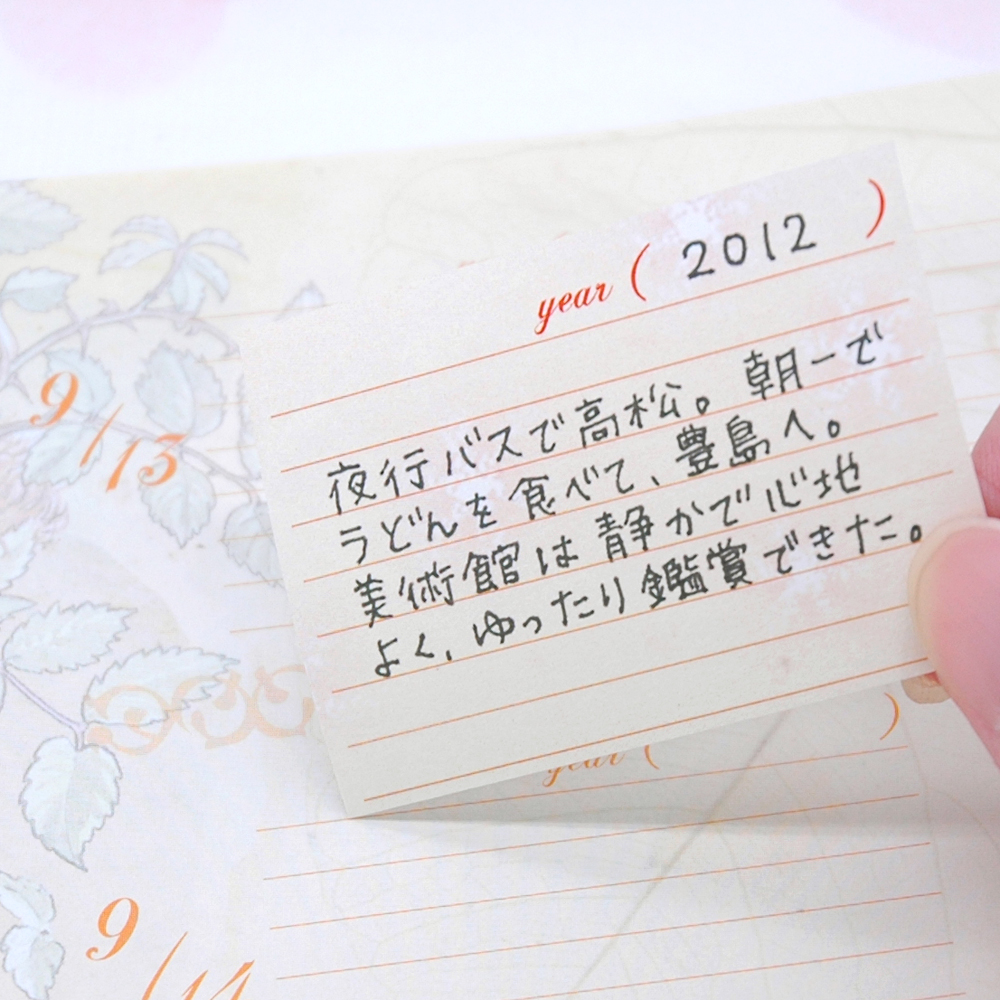 year ( 2012 )
夜行バスで高松。朝一で
うどんを食べて、豊島へ。
美術館は静かで心地
よく、ゆったり鑑賞できた。
9/13
year ( )
9/14